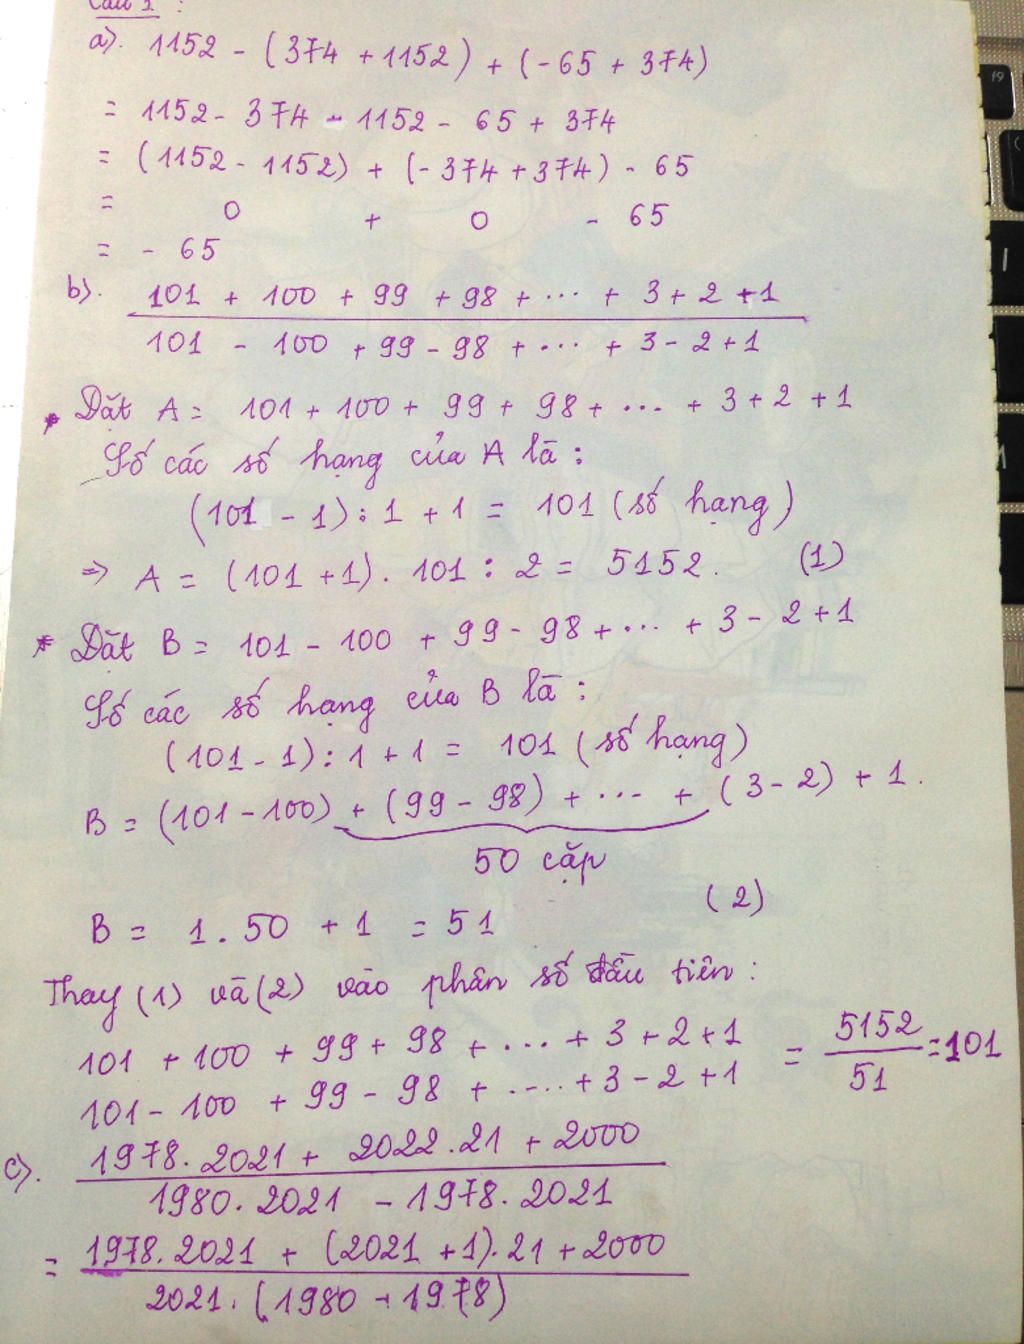 Câu 1 :
a). 1152 - (374 + 1152) + (-65 + 374)
= 1152 - 374 - 1152 - 65 + 374
= (1152 - 1152) + (-374 + 374) - 65
= 0 + 0 - 65
= - 65
b). 101 + 100 + 99 + 98 + ... + 3 + 2 + 1
101 - 100 + 99 - 98 + ... + 3 - 2 + 1
* Đặt A = 101 + 100 + 99 + 98 + ... + 3 + 2 + 1
Số các số hạng của A là :
(101 - 1) : 1 + 1 = 101 (số hạng)
=> A = (101 + 1) . 101 : 2 = 5152. (1)
* Đặt B = 101 - 100 + 99 - 98 + ... + 3 - 2 + 1
Số các số hạng của B là :
(101 - 1) : 1 + 1 = 101 (số hạng)
B = (101 - 100) + (99 - 98) + ... + (3 - 2) + 1.
50 cặp
B = 1 . 50 + 1 = 51 (2)
Thay (1) và (2) vào phân số đầu tiên :
101 + 100 + 99 + 98 + ... + 3 + 2 + 1 = 5152 = 101
101 - 100 + 99 - 98 + .... + 3 - 2 + 1 51
c). 1978. 2021 + 2022. 21 + 2000
1980. 2021 - 1978. 2021
= 1978. 2021 + (2021 + 1). 21 + 2000
2021. (1980 - 1978)